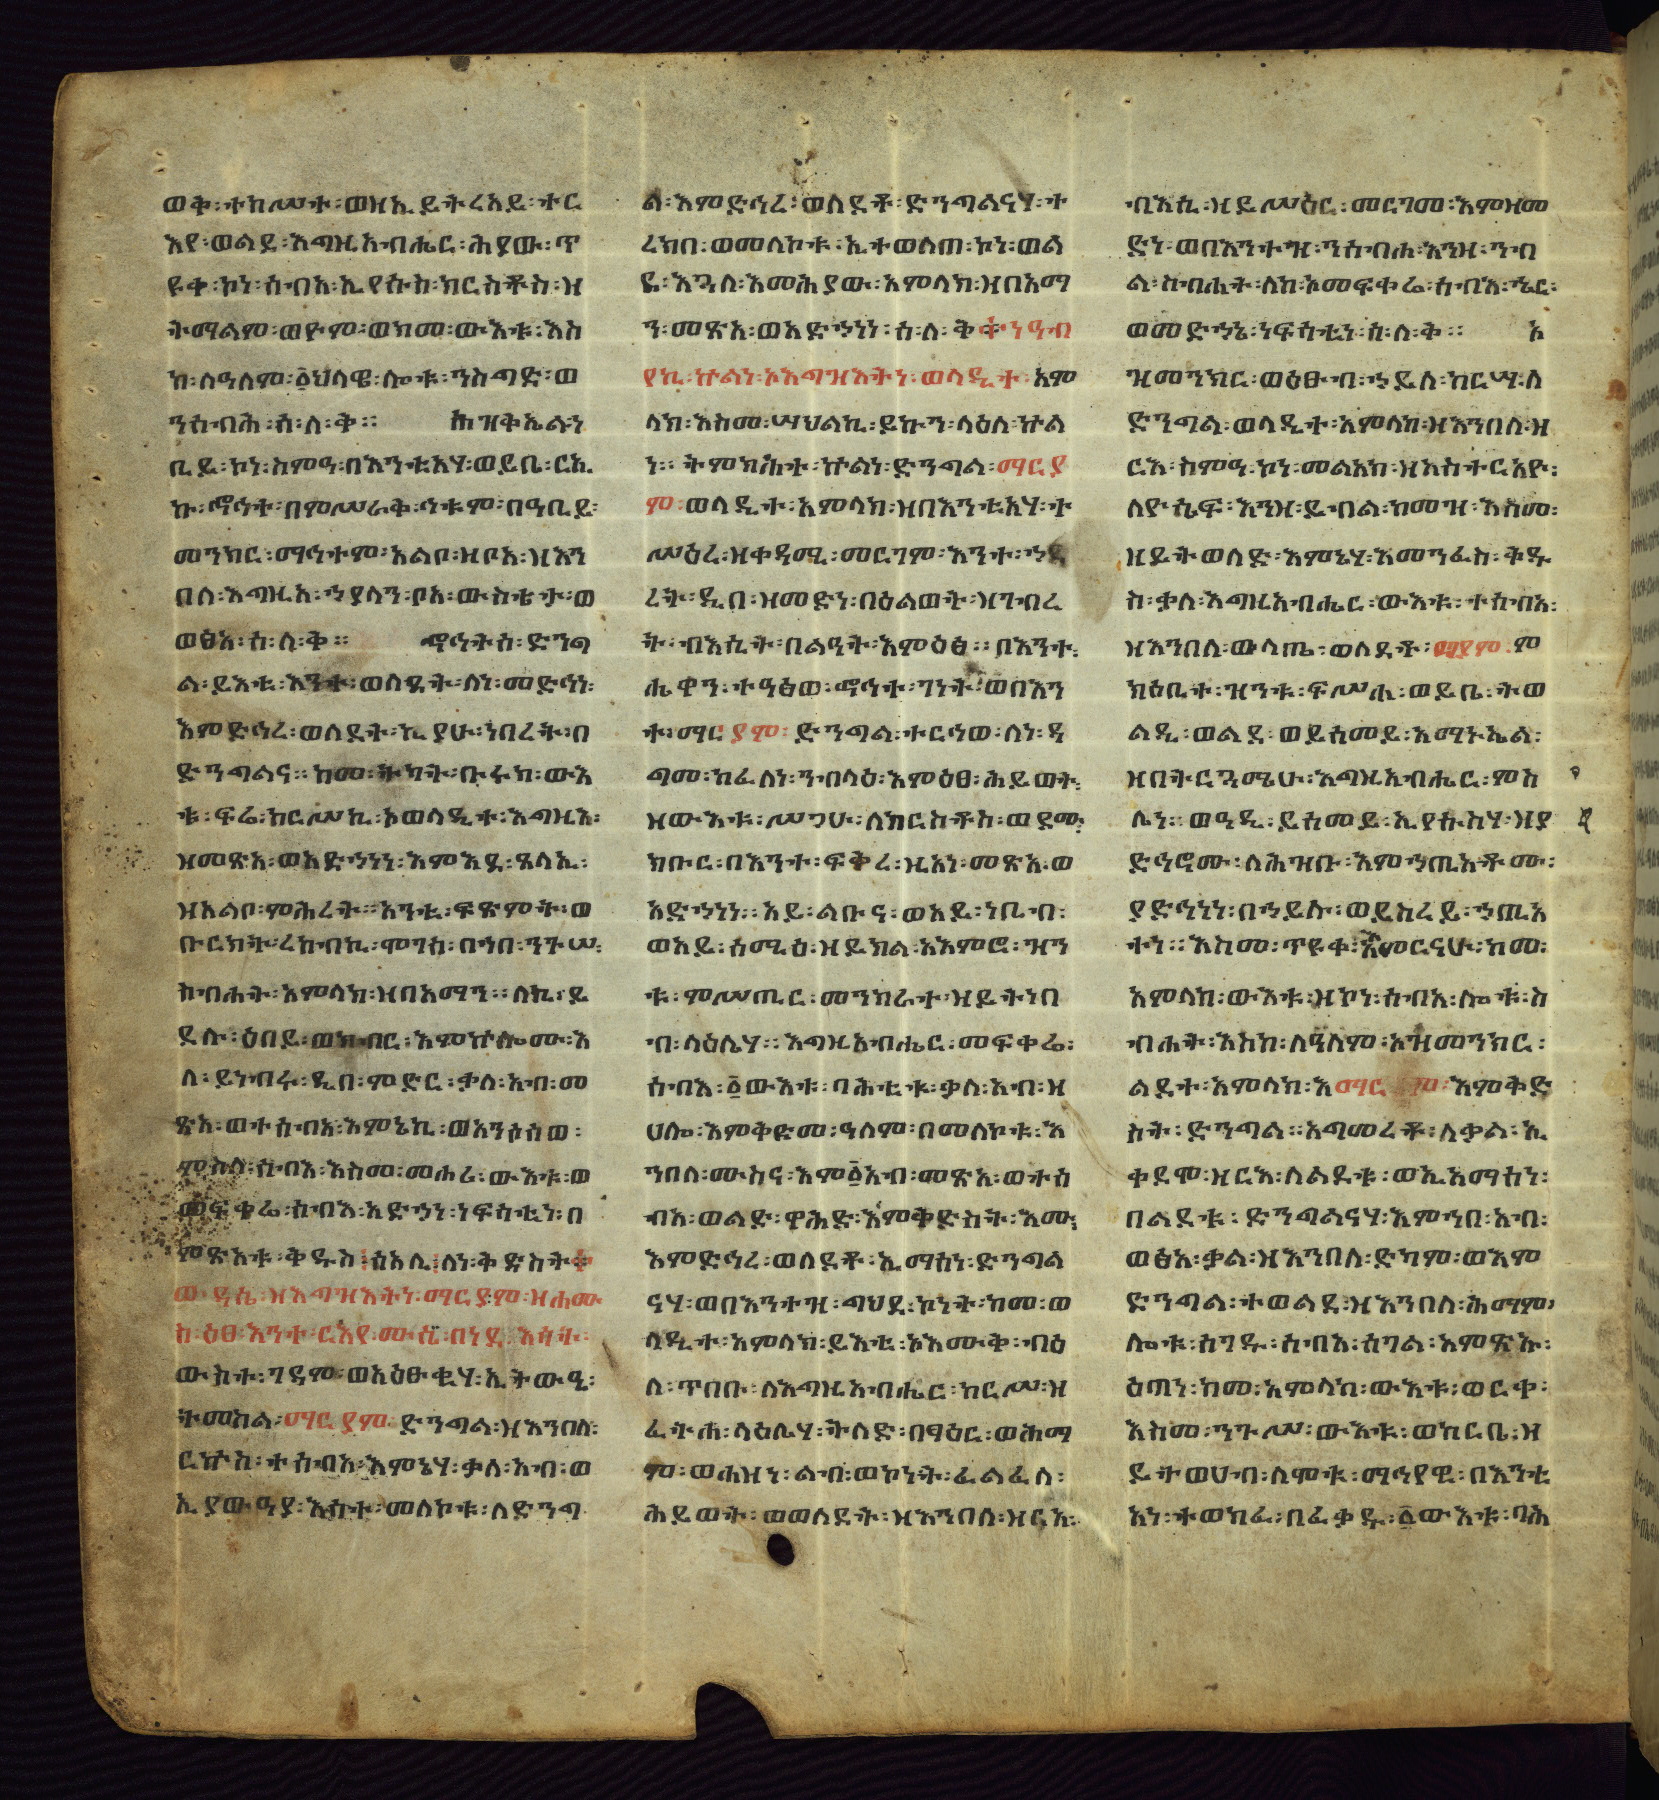 ወቅ፡ተከሥተ፡ወዘኢይትረአይ፡ተር
እየ፡ወልደ፡እግዚአብሔር፡ሕያው፡ጥ
ዩቀ፡ኮነ፡ሰብአ፡ኢየሱስ፡ክርስቶስ፡ዘ
ትማልም፡ወዮም፡ወክመ፡ውእቱ፡እስ
ከ፡ለዓለም፡፩ህላዌ፡ሎቱ፡ንስግድ፡ወ
ንሰብሕ፡ሰ፡ለ፡ቅ። ሕዝቅኤል፡ነ
ቢይ፡ኮነ፡ስምዓ፡በእንቲአሃ፡ወይቤ፡ርኢ
ኩ፡ኆኅተ፡በምሥራቅ፡ኅቱም፡በዓቢይ፡
መንክር፡ማኅተም፡አልቦ፡ዘቦአ፡ዘእን
በለ፡እግዚአ፡ኀያላን፡ቦአ፡ውስቴታ፡ወ
ወፅአ፡ሰ፡ለ፡ቅ። ኆኅትሰ፡ድንግ
ል፡ይእቲ፡እንተ፡ወለደት፡ለነ፡መድኅነ፡
እምድኅረ፡ወለደት፡ኪያሁ፡ነበረት፡በ
ድንግልና። ከመ፡ትካት፡ቡሩክ፡ውእ
ቱ፡ፍሬ፡ከርሥኪ፡ኦወላዲተ፡እግዚእ፡
ዘመጽአ፡ወአድኀነነ፡እምእደ፡ጸላኢ፡
ዘአልቦ፡ምሕረት። አንቲ፡ፍጽምት፡ወ
ቡርክት፡ረከብኪ፡ሞገሰ፡በኀበ፡ንጉሠ፡
ስብሐት፡አምላክ፡ዘበአማን። ለኪ፡ይ
ደሉ፡ዕበይ፡ወክብር፡እምኵሎሙ፡እ
ለ፡ይነብሩ፡ዲበ፡ምድር፡ቃለ፡አብ፡መ
ጽአ፡ወተሰብአ፡እምኔኪ፡ወአንሶሰወ፡
ምስለ፡ሰብእ፡እስመ፡መሐሪ፡ውእቱ፡ወ
መፍቀሬ፡ሰብእ፡አድኀነ፡ነፍሳቲነ፡በ
ምጽአቱ፡ቅዱስ፡ሰአሊ፡ለነ፡ቅድስት።
ወዳሴ፡ዘእግዝእትነ፡ማርያም፡ዘሐሙ
ስ፡ዕፀ፡እንተ፡ርእየ፡ሙሴ፡በነደ፡እሳት፡
ውስተ፡ገዳም፡ወአዕፁቂሃ፡ኢትውዒ፡
ትመስል፡ማርያም፡ድንግል፡ዘእንበለ፡
ርኵስ፡ተሰብአ፡እምኔሃ፡ቃለ፡አብ፡ወ
ኢያውዓያ፡እሳተ፡መለኮቱ፡ለድንግ
ል፡እምድኅረ፡ወለደቶ፡ድንግልናሃ፡ተ
ረክበ፡ወመለኮቱ፡ኢተወለጠ፡ኮነ፡ወል
ደ፡እጓለ፡እመሕያው፡አምላክ፡ዘበአማ
ን፡መጽአ፡ወአድኀነነ፡ሰ፡ለ፡ቅ፡ ነዓብ
የኪ፡ኵልነ፡ኦእግዝእትነ፡ወላዲተ፡አም
ላክ፡እስመ፡ሣህልኪ፡ይኩን፡ላዕለ፡ኵል
ነ። ትምክሕተ፡ኵልነ፡ድንግል፡ማርያ
ም፡ወላዲተ፡አምላክ፡ዘበእንቲአሃ፡ተ
ሥዕረ፡ዘቀዳሚ፡መርገም፡እንተ፡ኀደ
ረት፡ዲበ፡ዘመድነ፡በዕልወት፡ዘገብረ
ት፡ብእሲት፡በልዒት፡እምዕፅ። በእንተ፡
ሔዋን፡ተዓፅወ፡ኆኅተ፡ገነት፡ወበእን
ተ፡ማርያም፡ድንግል፡ተርኅወ፡ለነ፡ዳ
ግመ፡ከፈለነ፡ንብላዕ፡እምዕፀ፡ሕይወት፡
ዘውእቱ፡ሥጋሁ፡ለክርስቶስ፡ወደሙ፡
ክቡር፡በእንተ፡ፍቅረ፡ዚአነ፡መጽአ፡ወ
አድኀነነ። አይ፡ልቡና፡ወአይ፡ነቢብ፡
ወአይ፡ሰሚዕ፡ዘይክል፡አእምሮ፡ዝን
ቱ፡ምሥጢር፡መንክራተ፡ዘይትነበ
ብ፡ላዕሌሃ። እግዚአብሔር፡መፍቀሬ፡
ሰብእ፡፩ውእቱ፡ባሕቲቱ፡ቃለ፡አብ፡ዘ
ሀሎ፡እምቅድመ፡ዓለም፡በመለኮቱ፡እ
ንበለ፡ሙስና፡እም፩አብ፡መጽአ፡ወተሰ
ብአ፡ወልድ፡ዋሕድ፡እምቅድስት፡እሙ፡
እምድኅረ፡ወለደቶ፡ኢማሰነ፡ድንግል
ናሃ፡ወበእንተዝ፡ግህደ፡ኮነት፡ከመ፡ወ
ላዲተ፡አምላክ፡ይእቲ፡ኦእሙቅ፡ብዕ
ለ፡ጥበቡ፡ለእግዚአብሔር፡ከርሥ፡ዘ
ፈትሐ፡ላዕሌሃ፡ትለድ፡በፃዕር፡ወሕማ
ም፡ወሐዘነ፡ልብ፡ወኮነት፡ፈልፈለ፡
ሕይወት፡ወወለደት፡ዘእንበለ፡ዘርአ፡
ብእሲ፡ዘይሥዕር፡መርገመ፡እምዘመ
ድነ፡ወበእንተዝ፡ንሰብሐ፡እንዘ፡ንብ
ል፡ስብሐት፡ለከ፡ኦመፍቀሬ፡ሰብእ፡ኄር፡
ወመድኀኔ፡ነፍሳቲነ፡ሰ፡ለ፡ቅ። አ
ዝመንክር፡ወዕፁብ፡ኀይለ፡ከርሣ፡ለ
ድንግል፡ወላዲተ፡አምላክ፡ዘእንበለ፡ዘ
ርእ፡ስምዓ፡ኮነ፡መልአክ፡ዘአስተርአዮ፡
ለዮሴፍ፡እንዘ፡ይብል፡ከመዝ፡እስመ፡
ዘይትወለድ፡እምኔሃ፡እመንፈስ፡ቅዱ
ስ፡ቃለ፡እግዚአብሔር፡ውእቱ፡ተሰብአ፡
ዘእንበለ፡ውላጤ፡ወለደቶ፡ማርያም፡ም
ክዕቢተ፡ዝንቱ፡ፍሥሐ፡ወይቤ፡ትወ
ልዲ፡ወልደ፡ወይሰመይ፡አማኑኤል፡
ዘበትርጓሜሁ፡እግዚአብሔር፡ምስ
ሌነ። ወዓዲ፡ይሰመይ፡ኢየሱስሃ፡ዘያ
ድኅኖሙ፡ለሕዝቡ፡እምኀጢአቶሙ፡
ያድኅነነ፡በኀይሉ፡ወይስረይ፡ኀጢአ
ተነ። እስመ፡ጥዩቀ፡አእመርናሁ፡ከመ፡
አምላክ፡ውእቱ፡ዘኮነ፡ሰብአ፡ሎቱ፡ስ
ብሐት፡እስከ፡ለዓለም፡ኦዝመንክር፡
ልደተ፡አምላክ፡እማርያም፡እምቅድ
ስት፡ድንግል። አግመረቶ፡ለቃል፡ኢ
ቀደሞ፡ዘርእ፡ለልደቱ፡ወኢአማሰነ፡
በልደቱ፡ድንግልናሃ፡እምኀበ፡አብ፡
ወፅአ፡ቃል፡ዘእንበለ፡ድካም፡ወእም
ድንግል፡ተወልደ፡ዘእንበለ፡ሕማም፡
ሎቱ፡ሰገዱ፡ሰብአ፡ሰገል፡አምጽኡ፡
ዕጣነ፡ከመ፡አምላክ፡ውእቱ፡ወርቀ፡
እስመ፡ንጉሥ፡ውእቱ፡ወከርቤ፡ዘ
ይትወሀብ፡ለሞቱ፡ማኅየዊ፡በእንቲ
አነ፡ተወክፈ፡በፈቃዱ፡፩ውእቱ፡ባሕ